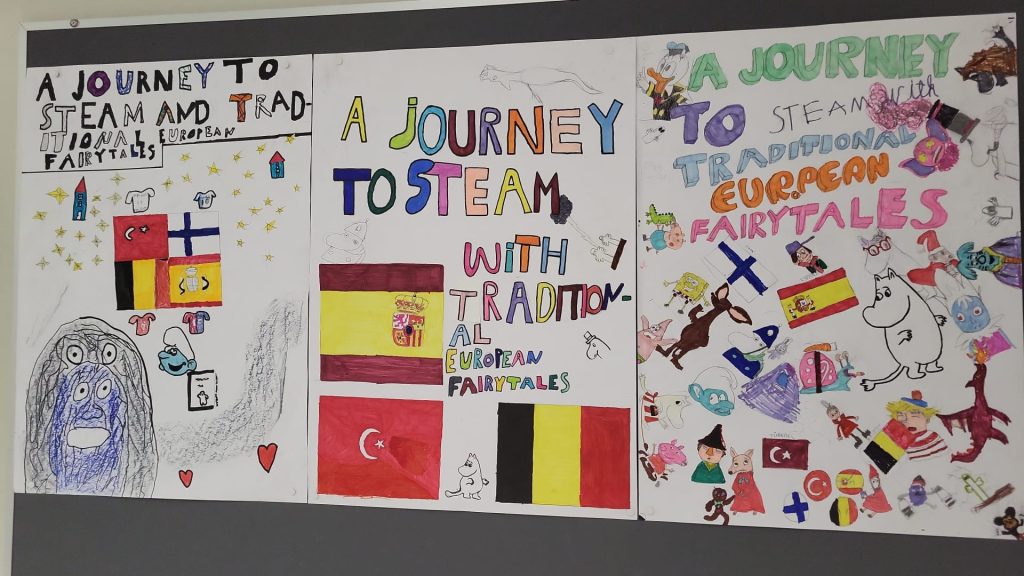 A JOURNEY TO
STEAM AND TRAD-
ITIONAL EUROPEAN
FAIRYTALES
A JOURNEY
TO STEAM
WITH
TRADITION-
AL
EUROPEAN
FAIRYTALES
A JOURNEY
TO STEAM with
TRADITIONAL
EUR.PEAN
FAIRYTALES
TÜRKİYE